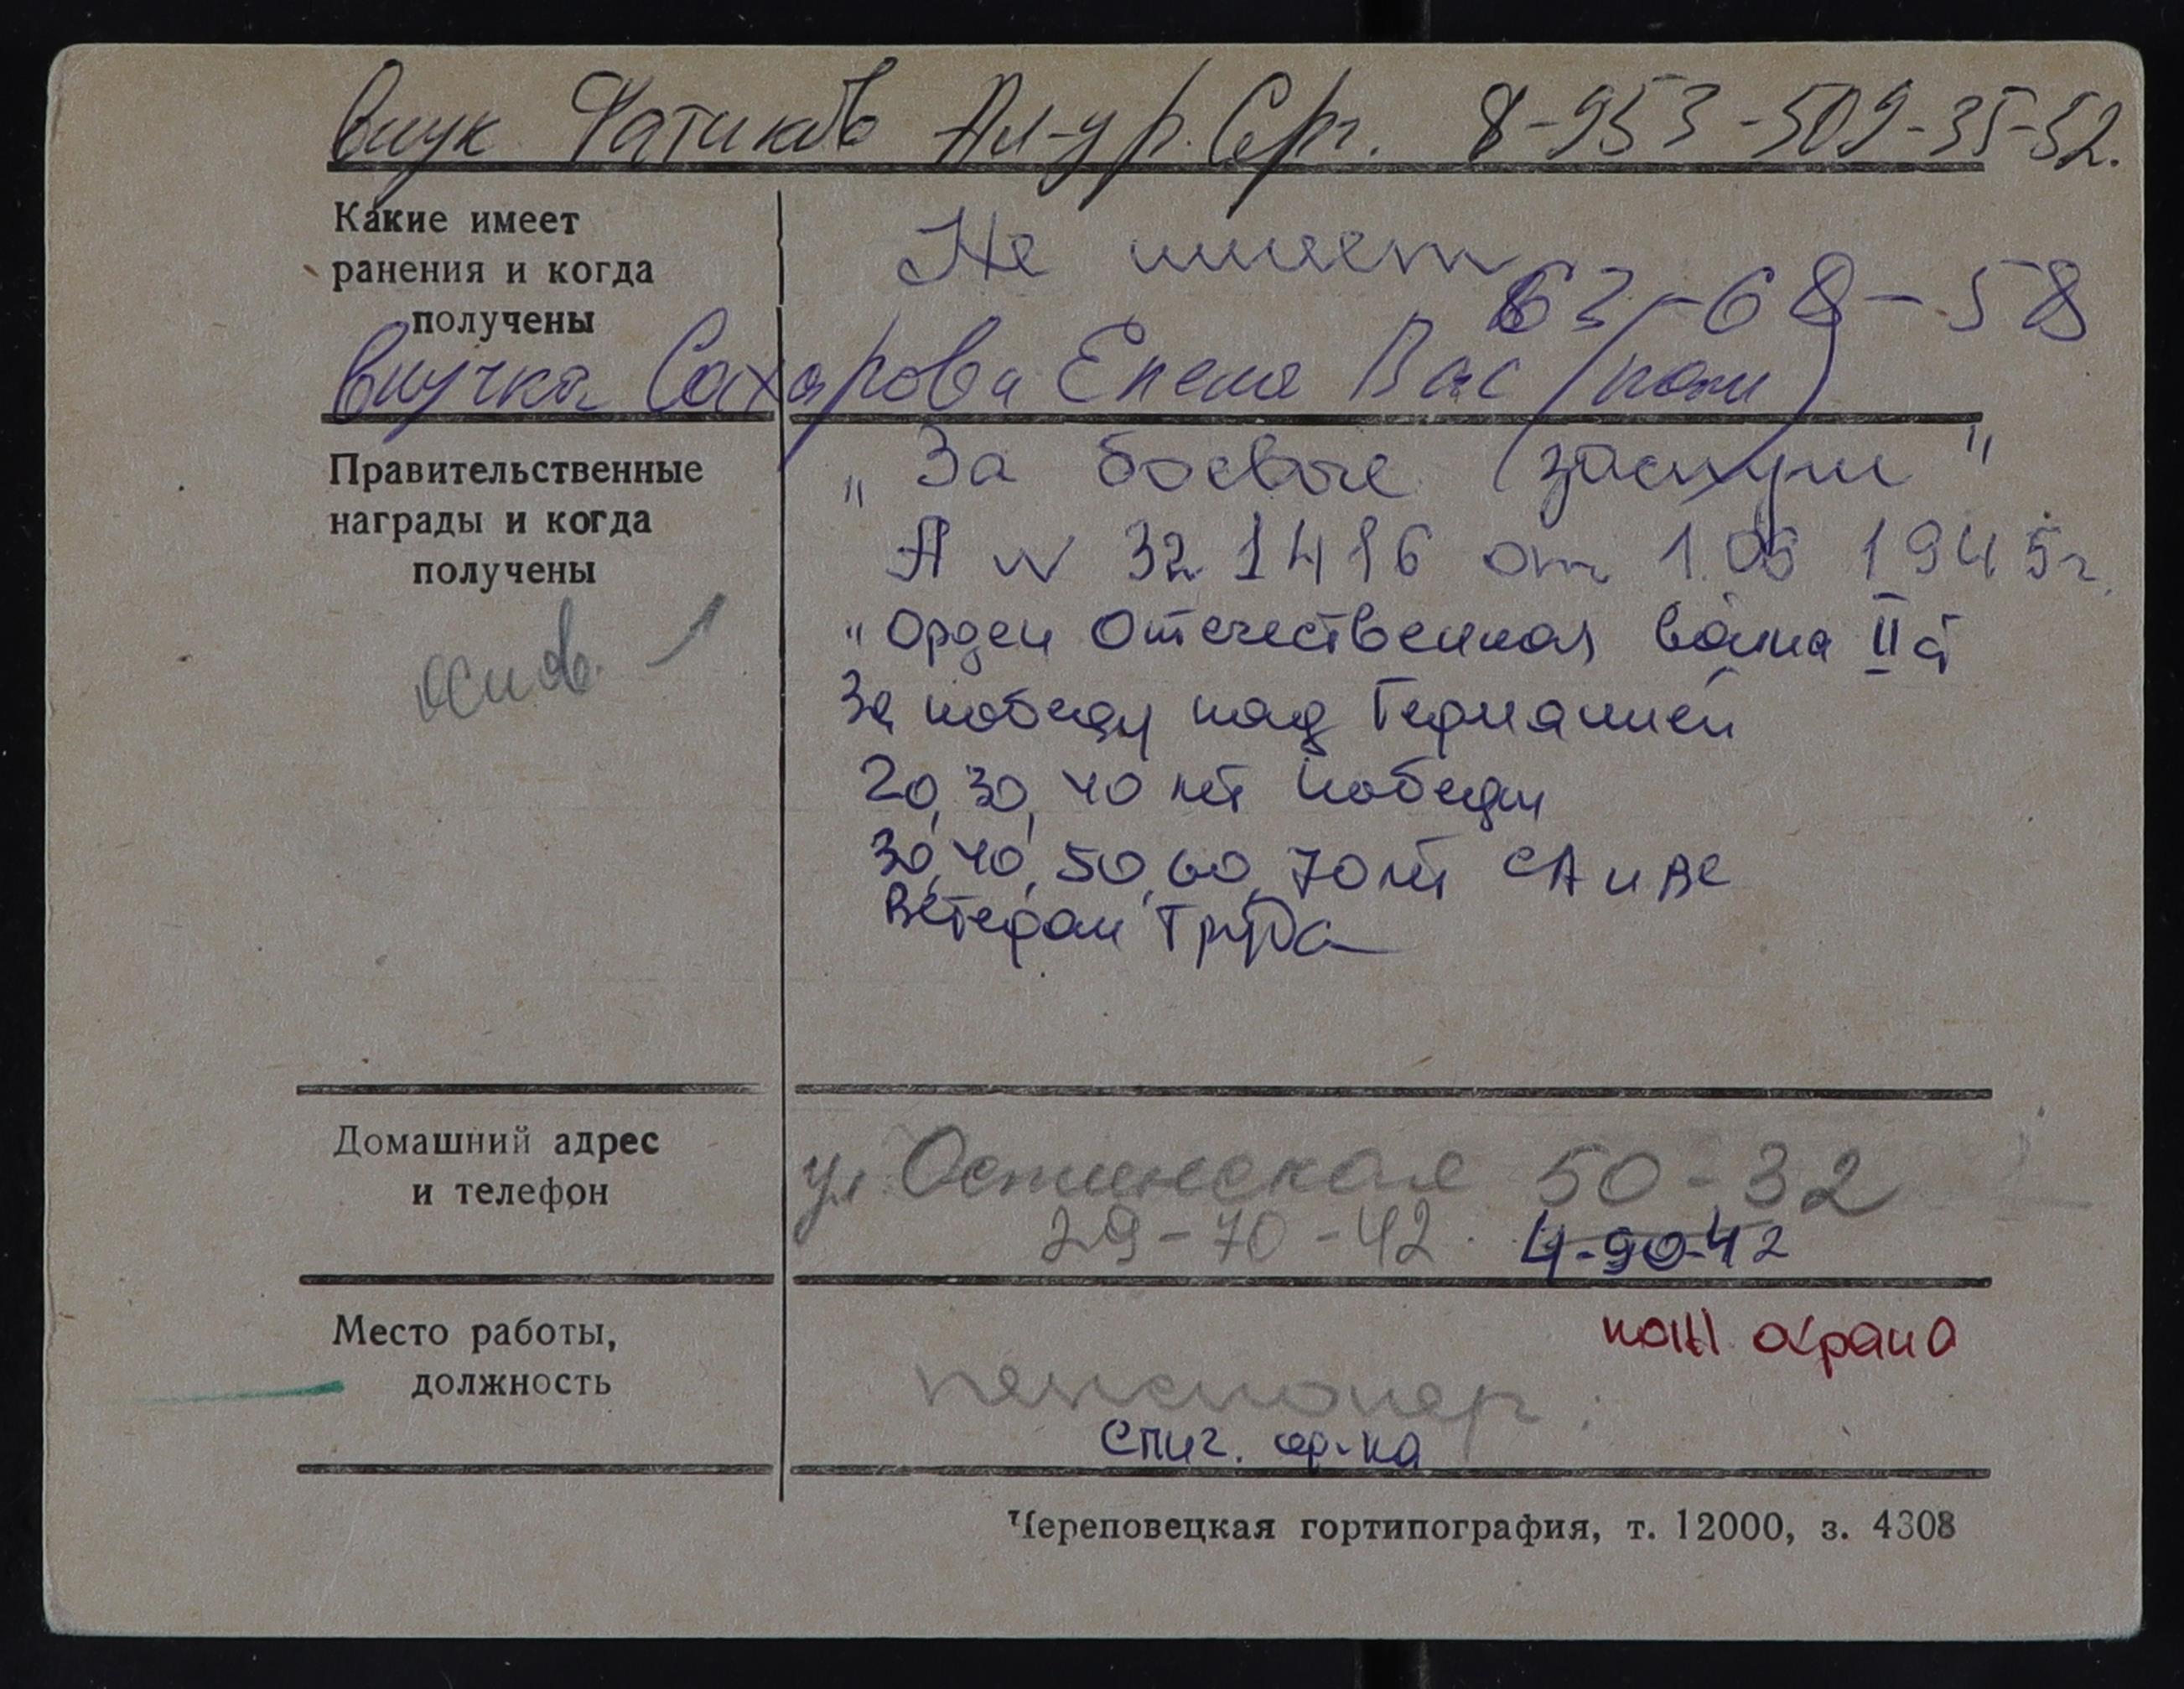 внук Фатиков Ал-др. Серг. 8-953-509-35-52.
Какие имеет
ранения и когда
получены
Не имеет
63-68-58
внучка Сахарова Елена Вас
Правительственные
награды и когда
получены
„За боевые заслуги"
А № 321416 от 1.05 1945г.
„Орден Отечественная война II ст
За победу над Германией
20, 30, 40 лет победы
30, 40, 50, 60, 70 лет СА и ВС
Ветеран Труда
основ.
Домашний адрес
и телефон
ул. Остинская 50-32
29-70-42 4-90-42
Место работы,
должность
пож. охрана
пенсионер.
спич. ф-ка
Череповецкая гортипография, т. 12000, з. 4308